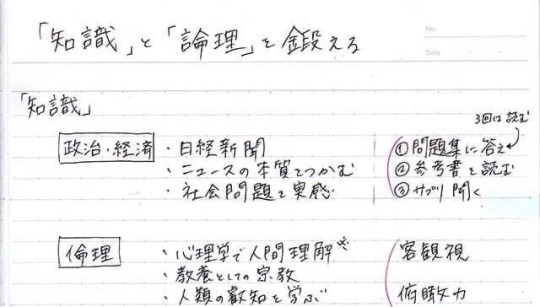 「知識」と「論理」を鍛える
No.
Date
「知識」
3回は読む
政治・経済 ・日経新聞 ①問題集に答え
・ニュースの本質をつかむ ②参考書を読む
・社会問題を実感 ③サプリ聞く
倫理 ・心理学で人間理解 客観視
・教養としての宗教
・人類の叡知を学ぶ 俯瞰力